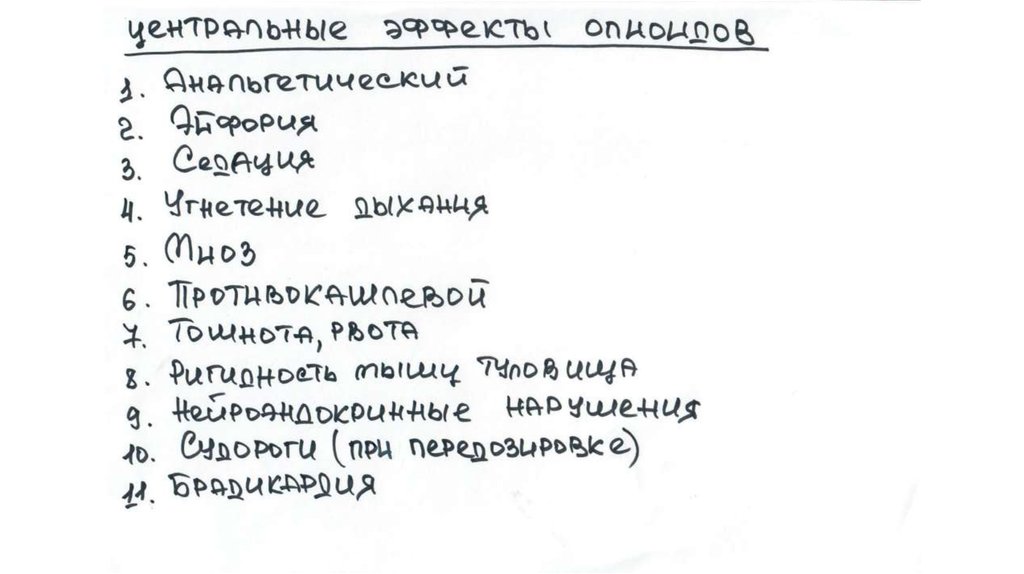 ЦЕНТРАЛЬНЫЕ ЭФФЕКТЫ ОПИОИДОВ
1. Анальгетический
2. Эйфория
3. Седация
4. Угнетение дыхания
5. Миоз
6. Противокашлевой
7. Тошнота, рвота
8. Ригидность мышц туловища
9. Нейроэндокринные нарушения
10. Судороги (при передозировке)
11. Брадикардия